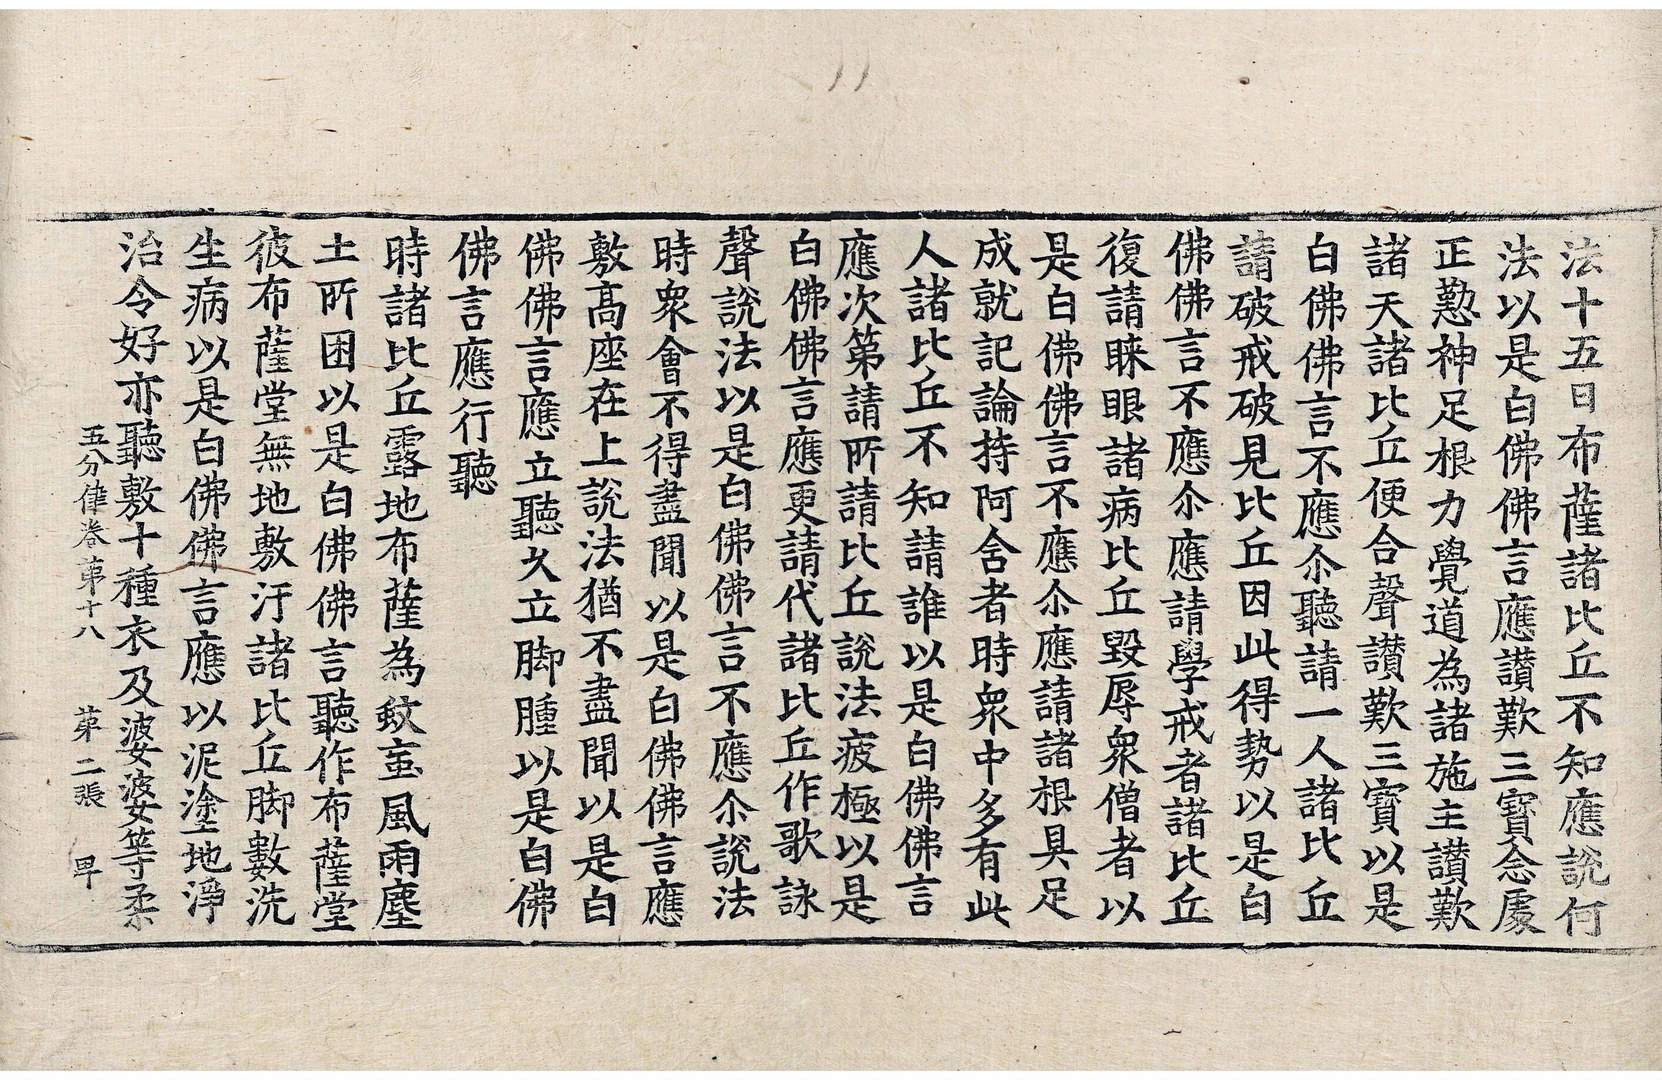 法十五日布薩諸比丘不知應說何
法以是白佛佛言應讃歎三寶念處
正懃神足根力覺道為諸施主讃歎
諸天諸比丘便合聲讃歎三寶以是
白佛佛言不應尒聽請一人諸比丘
請破戒破見比丘因此得勢以是白
佛佛言不應尒應請學戒者諸比丘
復請睞眼諸病比丘毀辱衆僧者以
是白佛佛言不應尒應請諸根具足
成就記論持阿含者時衆中多有此
人諸比丘不知請誰以是白佛佛言
應次第請所請比丘說法疲極以是
白佛佛言應更請代諸比丘作歌詠
聲說法以是白佛佛言不應尒說法
時衆會不得盡聞以是白佛佛言應
敷高座在上說法猶不盡聞以是白
佛佛言應立聽久立脚腫以是白佛
佛言應行聽
時諸比丘露地布薩為蚊䖟風雨塵
土所困以是白佛佛言聽作布薩堂
彼布薩堂無地敷汙諸比丘脚數洗
生病以是白佛佛言應以泥塗地淨
治令好亦聽敷十種衣及婆婆等柔
五分律卷第十八 第二張